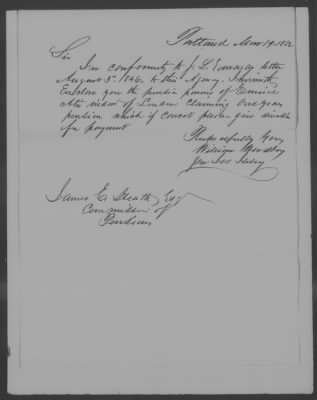 Portland Nov 19, 1852
Sir
In conformity to J. L. Edwards letter
August 3d. 1846. to this Agency. I herewith
Enclose you the pension papers of Eunice
widow of Claiming one year
pension which if correct please give
for payment
Respectfully Your
William Woodbury
James E. Heath Esq
Commissioner of
Pensions